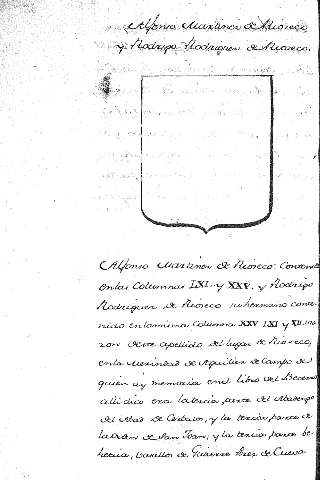 Alfonso Martinez de Rioseco
y Rodrigo Rodriguez de Rioseco.
Alfonso Martinez de Rioseco: Conten
en las Columnas LXI. y XXV. y Rodrigo
Rodriguez de Rioseco su hermano conte
nido en la misma Columna XXV LXI y XII
de este apellido del lugar de Rioseco,
en la Merindad de Aguilar de Campo de
quien ay memoria en el libro del Becerro
alli dice era la tercia parte del Abadengo
del Abad de y la tercia parte de
la orden de San Juan, y la tercia parte be
hetria, Vasallos de Gutierre de Cueva